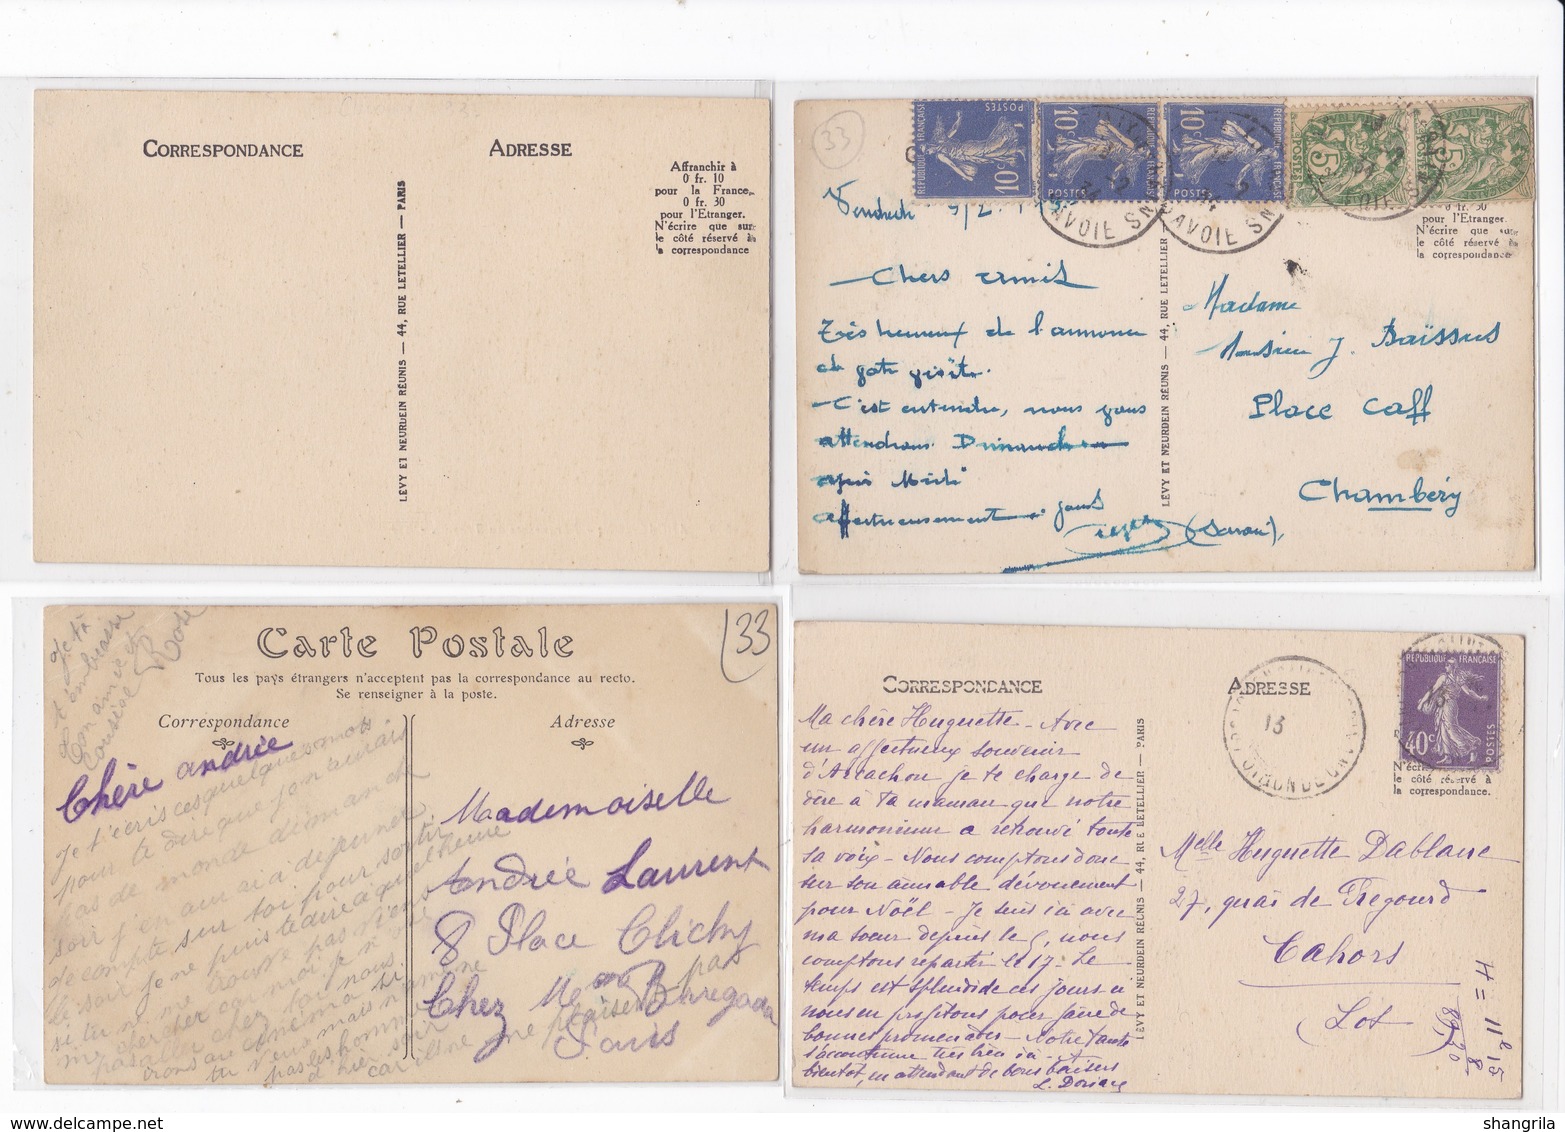 CORRESPONDANCE
ADRESSE
Affranchir à
0 fr. 10
pour la France,
0 fr. 30
pour l'Etranger.
N'écrire que sur
le côté réservé à
la correspondance
LÉVY ET NEURDEIN RÉUNIS — 44, RUE LETELLIER — PARIS
33
RÉPUBLIQUE FRANÇAISE
POSTES
10c
10c
POSTES
10c
POSTES
5c
POSTES
5c
SAVOIE
pour l'Etranger.
N'écrire que sur
le côté réservé à
la correspondance
Chers amis
Très heureux de l'annonce
de votre visite.
C'est entendu, nous vous
attendrons Dimanche
après Midi
affectueusement à vous
LÉVY ET NEURDEIN RÉUNIS — 44, RUE LETELLIER —
Madame
Monsieur J. Baïssus
Place Caff
Chambéry
(Savoie),
33
Carte Postale
Tous les pays étrangers n'acceptent pas la correspondance au recto.
Se renseigner à la poste.
Correspondance
Adresse
Je t'embrasse
Rose
Chère andrée
Je t'écris ces quelques mots
pour te dire que j'en aurais
pas de monde dimanche
soir j'en aurai a dejeuner
Je compte sur toi pour sortir
le soir Je ne puis te dire a quel heure
si tu ne me trouve pas viens
me chercher car moi je n'ose
pas aller chez toi nous
irons au Cinéma si
tu veux mais n'amène
pas les hommes
me plaise pas
Mademoiselle
Andrée Laurent
8 Place Clichy
Chez Mme
Paris
CORRESPONDANCE
ADRESSE
13
RÉPUBLIQUE FRANÇAISE
40c
POSTES
N'écrire
le côté réservé à
la correspondance.
Ma chère Huguette - Avec
un affectueux souvenir
d'Arcachon je te charge de
dire à ta maman que notre
harmonium a retrouvé toute
sa voix - Nous comptons donc
sur son aimable dévouement
pour Noël - Je suis ici avec
ma soeur depuis le 5, nous
comptons repartir le 17 - Le
temps est splendide ces jours ci
nous en profitons pour faire de
bonnes promenades - Notre tante
s'accoutume très bien ici - A
bientôt, en attendant de bons baisers
LÉVY ET NEURDEIN RÉUNIS — 44, RUE LETELLIER — PARIS
Melle Huguette Dablanc
27, quai de Regourd
Cahors
Lot
delcampe.net
shangrila